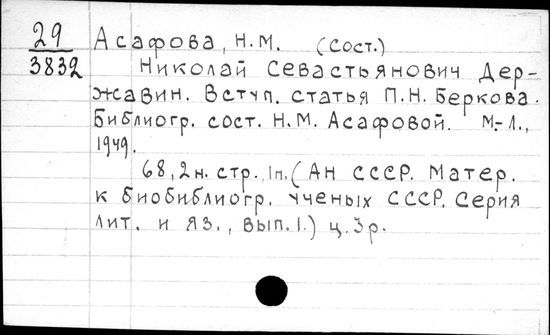 29
3832
Асафова, Н.М. (сост.)
Николай Севастьянович Дер-
жавин. Вступ. статья П.Н. Беркова.
Библиогр. сост. Н.М. Асафовой. М.-Л.,
1949.
68, 2 н. стр. 1 п. (АН СССР. Матер.
к биобиблиогр. ученых СССР. Серия
лит. и яз., вып. 1.) ц. 3 р.